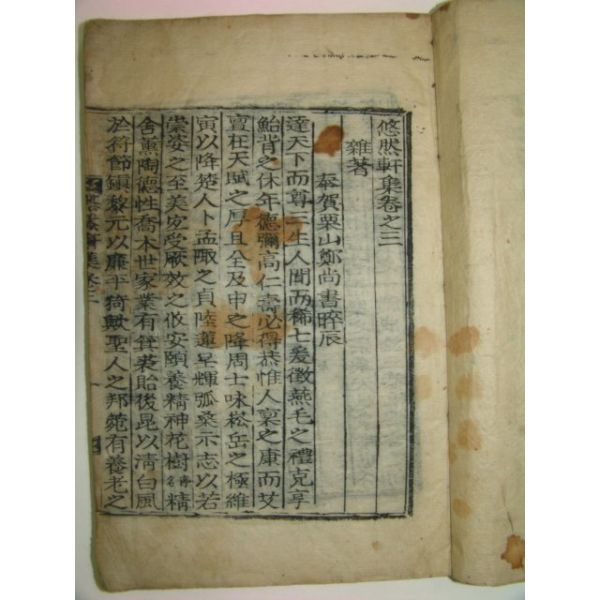 悠然軒集卷之三
雜著
奉賀栗山鄭尚書晬辰
達天下而尊三生人間而稀七爰徵燕毛之禮克享
鮐背之休年德彌高仁壽必得恭惟人稟之康而艾
亶在天賦之厚且全及申之降周士咏崧岳之極維
寅以降楚人卜孟陬之貞陸蓮早輝弧桑示志以若
崇姿之至美安受厥效之攸安頤養精神花樹 精
舍薰陶德性喬木世家業有箕裘貽後昆以清白風
於符節鎭黎元以廉平猗歟聖人之邦菀有養老之